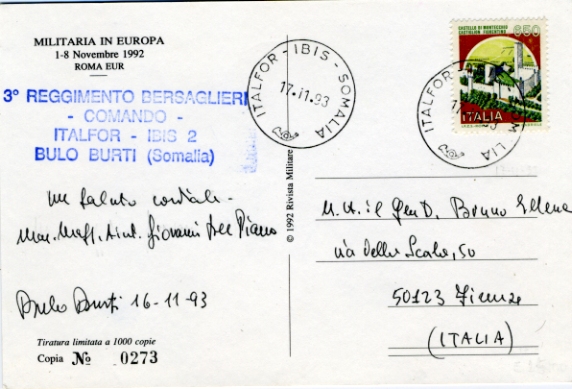 MILITARIA IN EUROPA
1-8 Novembre 1992
ROMA EUR
3° REGGIMENTO BERSAGLIERI
- COMANDO -
ITALFOR - IBIS 2
BULO BURTI (Somalia)
un saluto cordiale.
Giovanni Del Piano
Bulo Burti 16-11-93
Tiratura limitata a 1000 copie
Copia № 0273
© 1992 Rivista Militare
ITALFOR - IBIS - SOMALIA
17.11.93
CASTELLO DI MONTECCHIO
CASTIGLION FIORENTINO
650
ITALIA
ITALFOR -
LIA
Gen D. Bruno
via della Scala, 50
50123 Firenze
(ITALIA)